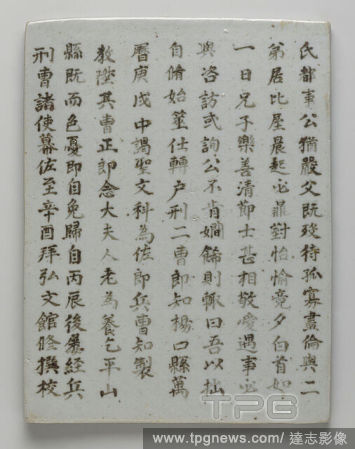 氏都事公猶嚴父既歿待孤寡盡倫與二
弟居比屋晨起必鼎對怡愉竟夕白首如
一日兄子樂善清節士甚相敬愛遇事必
與咨訪或詢公不肯餙則輒曰吾以拙
自脩始筮仕轉户刑二曹郎知楊口縣萬
曆庚戌中謁聖文科為佐郎兵曹知製
敎陞其曹正郎念大夫人老為養乞平山
縣既而色憂即自免歸自丙辰後經兵
刑曹諸使幕佐至辛酉拜弘文館修撰校
TPG
www.tpgnews.com / 達志影像